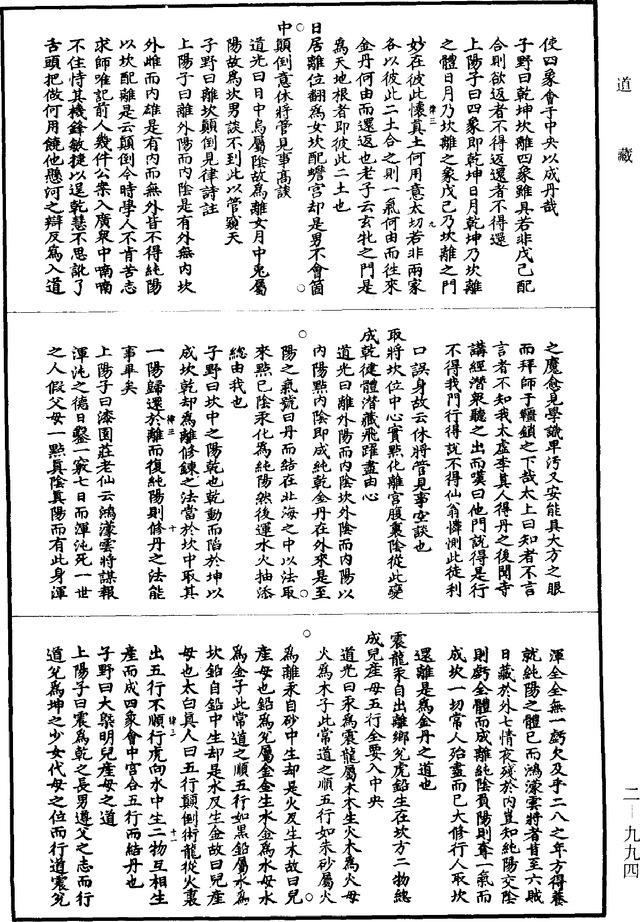 道藏
使四象會于中央以成丹哉
子野曰乾坤坎離四象雖具若非戊己配
合則欲返者不得返還者不得還
上陽子曰四象即乾坤日月乾坤乃坎離
之體日月乃坎離之象戊己乃坎離之門
妙在彼此懷真土何用意太切若非兩家
各以彼此二土合之則一氣何由而往來
金丹何由而還返也老子云玄牝之門是
為天地根者即彼此二土也
日居離位翻為女坎配蟾宮却是男不會箇
中顛倒意休將管見事高談
道光曰日中烏屬陰故為離女月中兎屬
陽故為坎男談不到此以管窺天
子野曰離坎顛倒見律詩註
上陽子曰離外陽而內陰是有外無內坎
外雌而內雄是有內而無外皆不得純陽
以坎配離是云顛倒今時學人不肯苦志
求師唯記前人幾件公案入廣衆中喃喃
不住恃其機鋒敏捷以逞乾慧不思訛了
舌頭把做何用饒他懸河之辯反為入道
之魔愈見學識卑汚又安能具大方之眼
而拜師于䡾鎖之下哉太上曰知者不言
言者不知我太虛李真人得丹之後聞寺
講經潛衆聽之出而嘆曰他門說得是行
不得我門行得說不得仙翁憐惻此徒利
口誤身故云休將管見事空談也
取將坎位中心實點化離宮腹裏陰從此變
成乾健體潛藏飛躍盡由心
道光曰離外陽而內陰坎外陰而內陽以
內陽點內陰即成純乾金丹在外來是至
陽之氣號曰丹而結在北海之中以法取
來點己陰汞化為純陽然後運水火抽添
總由我也
子野曰坎中之陽乾也乾動而陷於坤以
成坎乾却為離修鍊之法當於坎中取其
一陽歸還於離而復純陽則修丹之法能
事畢矣
上陽子曰漆園莊老仙云鴻濛雲將謀報
渾沌之德日鑿一竅七日而渾沌死一世
之人假父母一點真陰真陽而有此身渾
渾全全無一虧欠及乎二八之年方得養
就純陽之體已而鴻濛雲將者甘至六賊
日藏於外七情夜殘於內豈知純陽交陰
則虧全體而成離純陰負陽則奪一氣而
成坎一切常人殆盡而已大修行人取坎
還離是為金丹之道也
震龍汞自出離鄉兊虎鉛生在坎方二物總
成兒產母五行全要入中央
道光曰汞為震龍屬木木生火木為火母
火為木子此常道之順五行如朱砂屬火
為離汞自砂中生却是火反生木故曰兒
產母也鉛為兊屬金金生水金為水母水
為金子此常道之順五行如黑鉛屬水為
坎鉛自鉛中生却是水反生金故曰兒產
母也太白眞人曰五行顛倒術龍從火裏
出五行不順行虎向水中生二物互相生
產而成四象會中宮合五行而結丹也
子野曰大槩明兒產母之道
上陽子曰震為乾之長男遵父之志而行
道兊為坤之少女代母之位而行道震兊
二—九九四